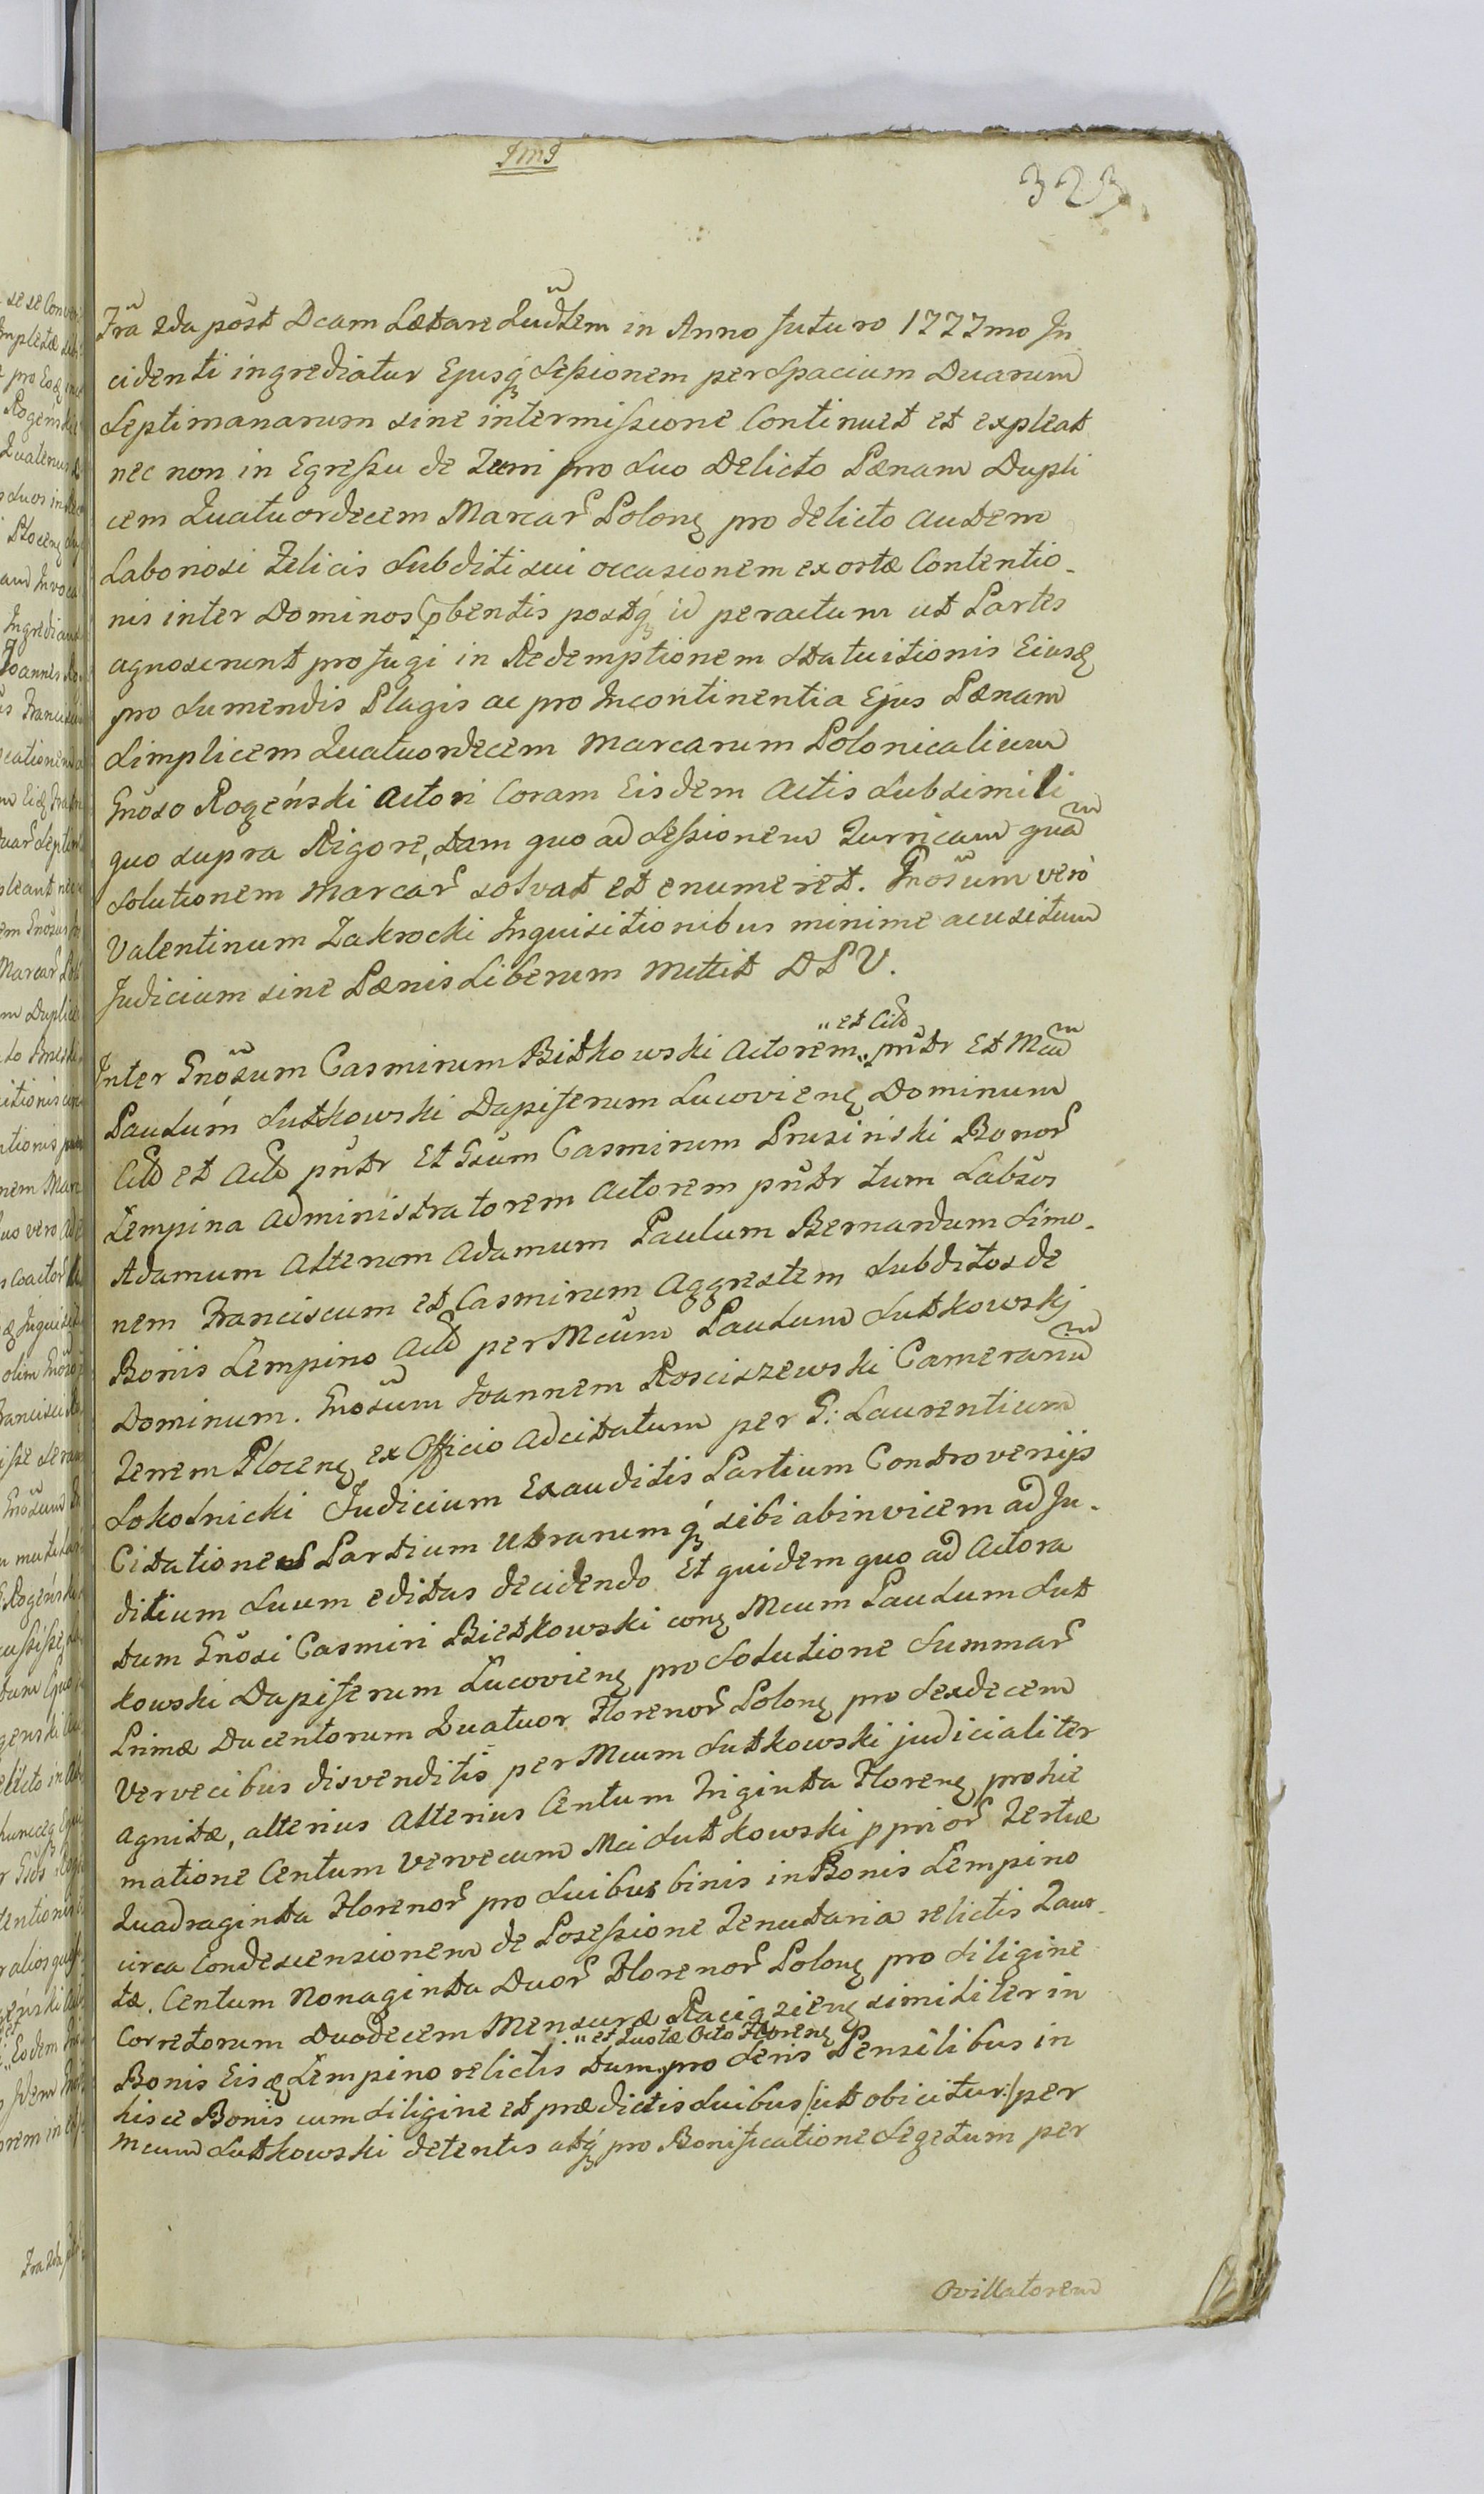 JMJ
323
Fra 2da post Dcam Lætare Ludtem in Anno futuro 1777mo In
cidenti ingrediatur Ejusq₃ Sessionem per Spacium Duarum
Septimanarum sine intermissione Continuet et expleat
nec non in Egressu de Turri pro Suo Delicto Pænam Dupli
cem Quatuordecem Marcar Polonę pro delicto autem
Laboriosi Felicis Subditi sui occasionem exortæ Contentio-
nis inter Dominos pbentis postq₃ id peractum ut Partes
agnoscerunt profugi in Redemptionem Statuitionis Eiusę
pro Sumendis Plagis ac pro Incontinentia Ejus Pænam
Simplicem Quatuordecem Marcarum Polonicalium
Gnoso Rogeński Actori Coram Eisdem Actis Subsimili
quo supra Rigore, tam quo ad Sessionem Turricam quam
Solutionem Marcar solvat et enumeret. Gnosum vero
Valentinum Zakrocki Inquisitionibus minime acusitum
Judicium sine Pænis Liberum Mittit DPV.
Inter Gnosum Casmirum Bitkowski Actorem „et Citt pntr Et Mcum
Paulum Sutkowski Dapiferum Lucovienę Dominum
Citt et Actt pntr Et Gsum Casmirum Prusinski Bonor
Lempina Administratorem Actorem pntr tum Labsos
Adamum Alterum Adamum Paulum Bernardum Simo-
nem Franciscum et Casmirum Aggrestem Subditos de
Boniis Lempino Actt per Mcum Paulum Sutkowskj
Dominum. Gnosum Joannem Rosciszewski Cameranum
Terrem Plocenę ex Officio Adcitatum per G: Laurentium
Sokolnicki Judicium Exauditis Partium Controversijs
Citationes Partium Utrarumq₃ sibi abinvicem ad Ju-
ditium Suum editas decidendo Et quidem quo ad Actora
tum Gnosi Casmiri Bietkowski conę Mcum Paulum Sut
kowski Dapiferum Lucovienę pro Solutione Summar
Primæ Ducentorum Quatuor Florenor Polonę pro Sexdecem
Vervecibus disvenditis per Mcum Sutkowski judicialiter
agnitæ, alterius Alterius Centum Triginta Florenę pro hie
matione Centum Vervecum Mci Sutkowski p prior Tertiæ
Quadraginta Florenor pro Suibus binis in Bonis Lempino
circa Condescensionem de Posessione Tenutaria relictis Quar-
tæ. Centum Nonaginta Duor Florenor Polonę pro Siligine
Corretorum Duodecem Mensuræ Raciązienę similiter in
Bonis Eisdę Lempino relictis „et Quotæ Octo Florenę tum pro Senis Pensilibus in
hisce Bonis cum Siligine et prædictis Suibus /:ut obicitur:/ per
Mcum Sutkowski detentis atq₃ pro Bonificatione Segetum per
Ovillatorem